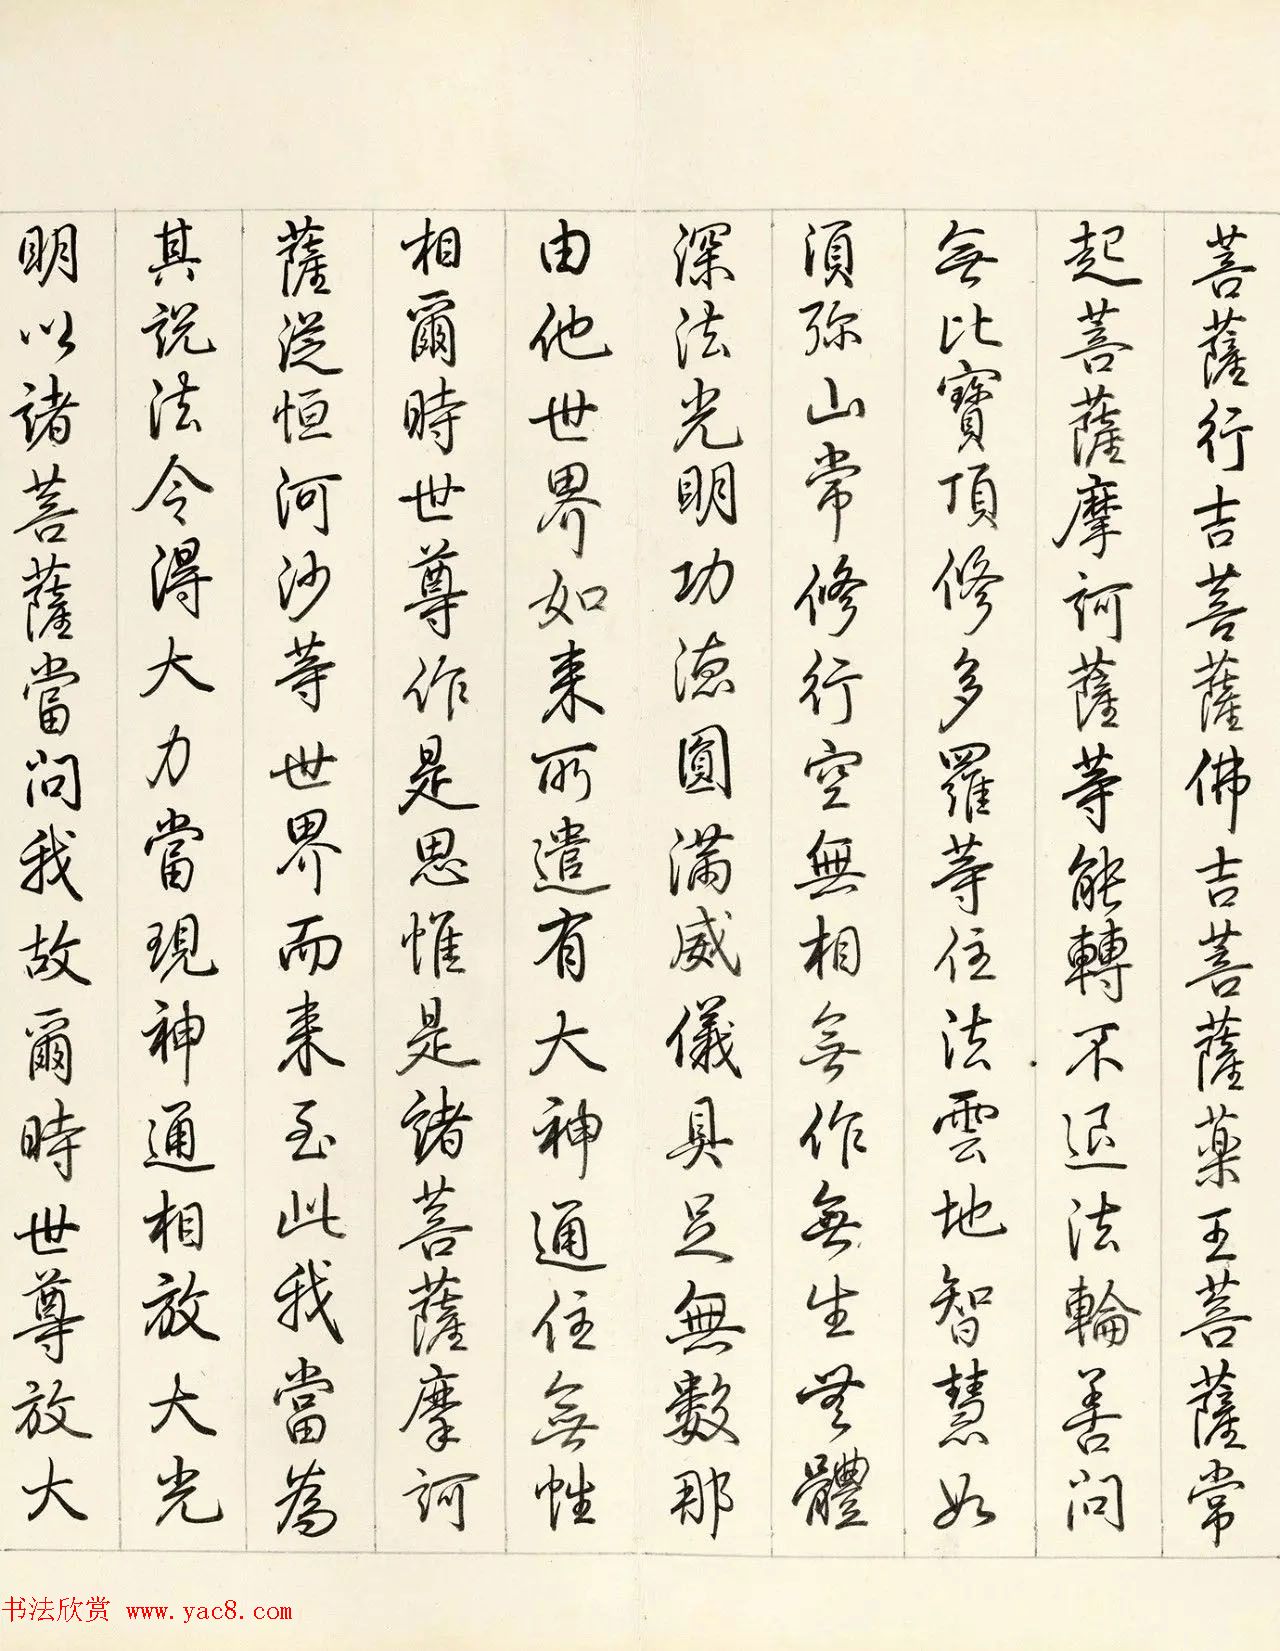 菩薩行吉菩薩佛吉菩薩藥王菩薩常
起菩薩摩訶薩等能轉不退法輪善問
無比寶頂修多羅等住法雲地智慧如
須弥山常修行空無相無作無生無體
深法光明功德圓滿威儀具足無數那
由他世界如来所遣有大神通住無性
相爾時世尊作是思惟是諸菩薩摩訶
薩從恒河沙等世界而来至此我當為
其説法令得大力當現神通相放大光
明以諸菩薩當問我故爾時世尊放大
书法欣赏 www.yac8.com